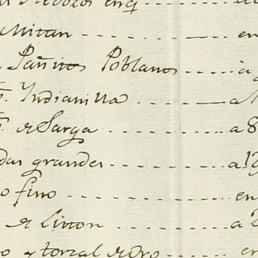 Mitan - - - - - - - - en
Pañitos Poblanos - - - - a
Indianilla - - - - - - - a
de Sarga - - - - - - - a 8
das grandes - - - - - - a 1
o fino - - - - - - - - en
de Litton - - - - - - - a 2
o y torzal de Oro - - - en